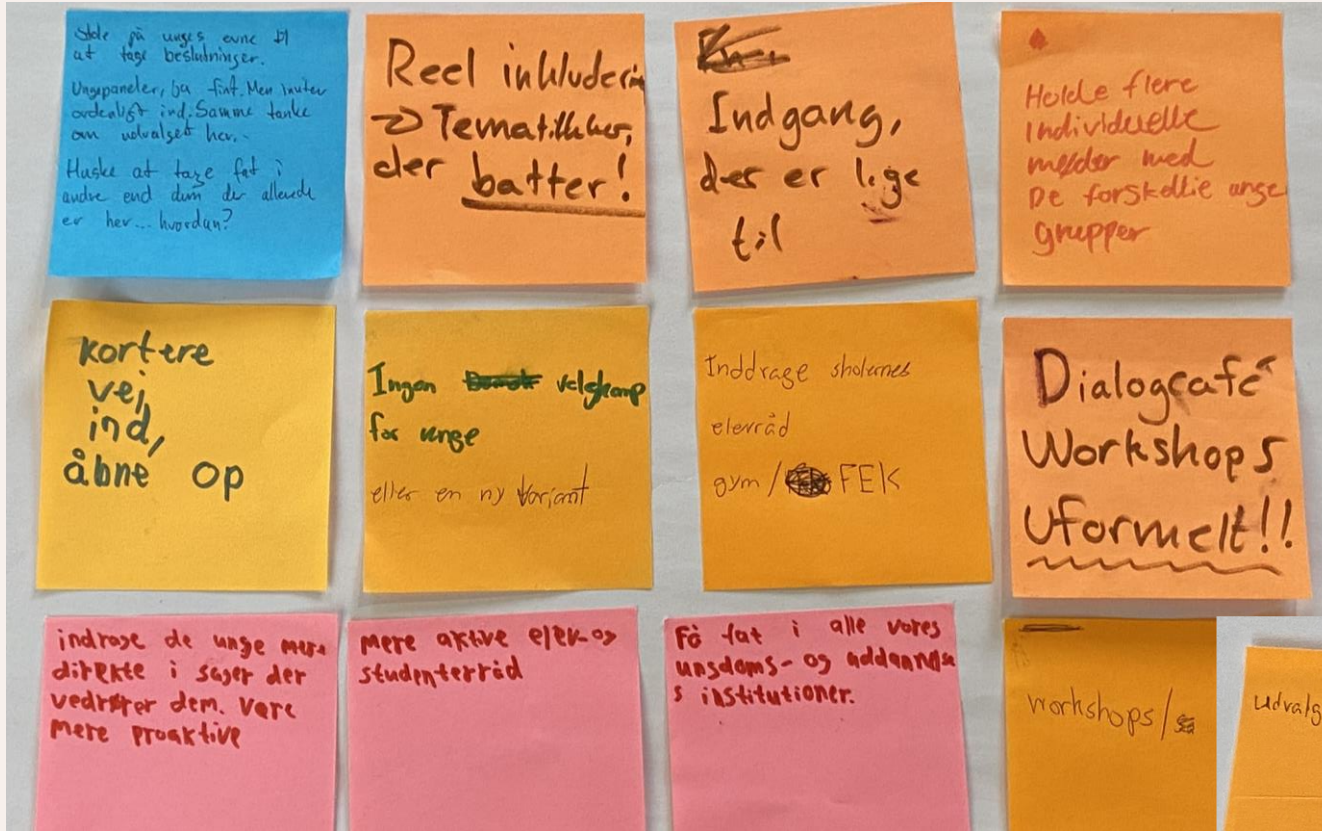 Stole på unges evne til
at tage beslutninger.
Ungepaneler, ja fint. Men inviter
ordentligt ind. Samme tanke
om udvalget her.
Huske at tage fat i
andre end dem der allerede
er her... hvordan?
Reel inkluderin
→ Tematikker,
der batter!
Indgang,
der er lige
til
Holde flere
individuelle
møder med
De forskellie unge
grupper
kortere
vej
ind,
åbne op
Ingen valgkamp
for unge
eller en ny variant
Inddrage skolernes
elevråd
gym/ FEK
Dialogcafé
Workshops
Uformelt!!
indrage de unge mere
direkte i sager der
vedrører dem. Være
mere proaktive
Mere aktive elev- og
studenterråd
Få fat i alle vores
ungdoms- og uddannelse
s institutioner.
workshops/
udvalg